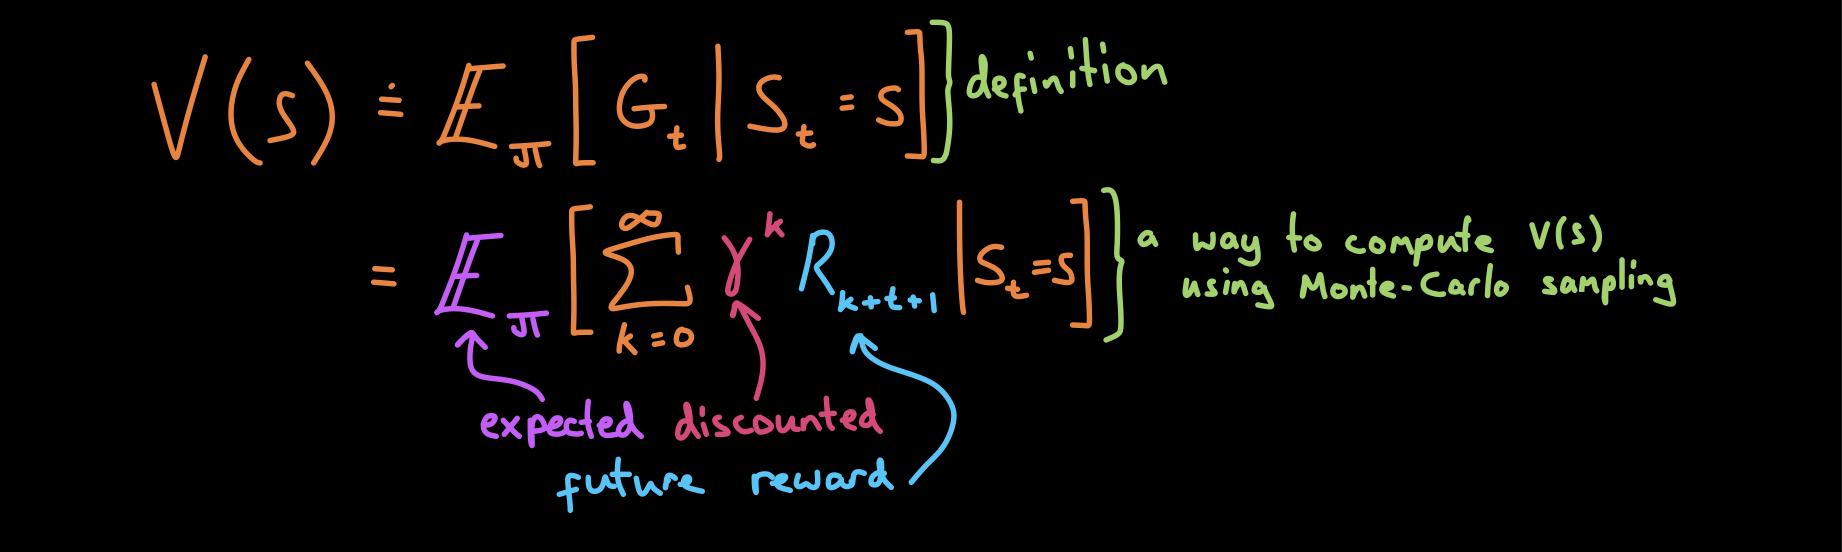 V(s) ≐ 𝔼_π [ G_t | S_t = s ] } definition
= 𝔼_π [ ∑_{k=0}^{∞} γ^k R_{k+t+1} | S_t = s ] } a way to compute V(s)
using Monte-Carlo sampling
expected discounted
future reward